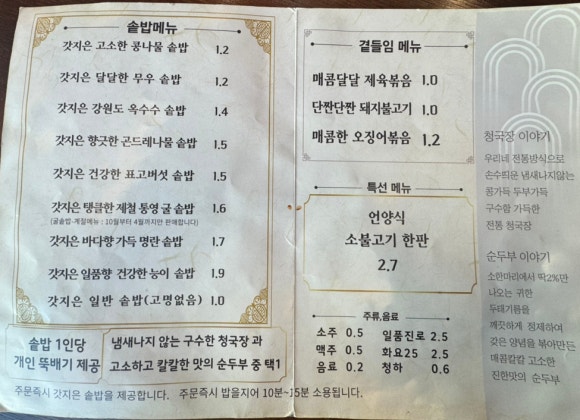 솥밥메뉴
갓지은 고소한 콩나물 솥밥 1.2
갓지은 달달한 무우 솥밥 1.2
갓지은 강원도 옥수수 솥밥 1.4
갓지은 향긋한 곤드레나물 솥밥 1.5
갓지은 건강한 표고버섯 솥밥 1.5
갓지은 탱클한 제철 통영 굴 솥밥 1.6
(굴솥밥-계절메뉴 : 10월부터 4월까지만 판매합니다)
갓지은 바다향 가득 명란 솥밥 1.7
갓지은 일품향 건강한 능이 솥밥 1.9
갓지은 일반 솥밥(고명없음) 1.0
솥밥 1인당
개인 뚝배기 제공
냄새나지 않는 구수한 청국장 과
고소하고 칼칼한 맛의 순두부 중 택1
주문즉시 갓지은 솥밥을 제공합니다. 주문즉시 밥을지어 10분~15분 소용됩니다.
곁들임 메뉴
매콤달달 제육볶음 1.0
단짠단짠 돼지불고기 1.0
매콤한 오징어볶음 1.2
특선 메뉴
언양식
소불고기 한판
2.7
주류,음료
소주 0.5 일품진로 2.5
맥주 0.5 화요25 2.5
음료 0.2 청하 0.6
청국장 이야기
우리네 전통방식으로
손수띄운 냄새나지않는
콩가득 두부가득
구수함 가득한
전통 청국장
순두부 이야기
소한마리에서 딱2%만
나오는 귀한
두태기름을
깨끗하게 정제하여
갖은 양념을 볶아만든
매콤칼칼 고소한
진한맛의 순두부